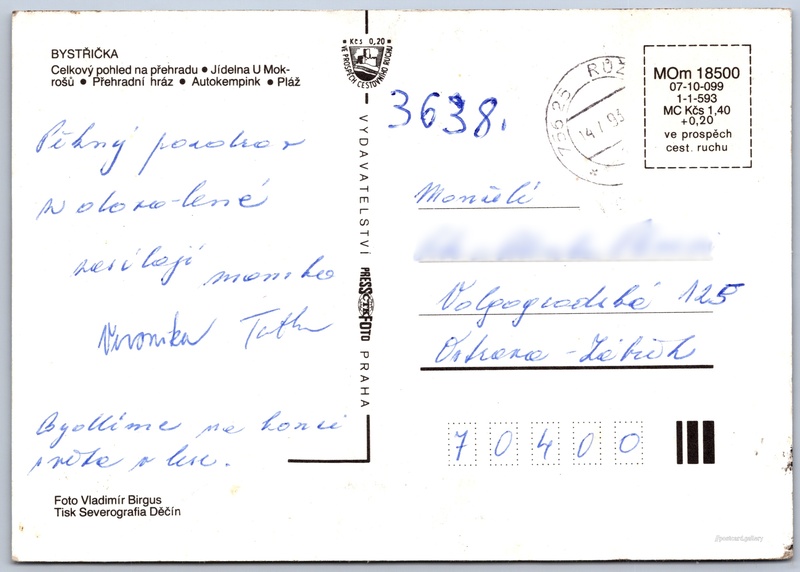 BYSTŘIČKA
Celkový pohled na přehradu ● Jídelna U Mok-
rošů ● Přehradní hráz ● Autokempink ● Pláž
Pěkný pozdrav
z dovolené
zasílají mamka
Veronika Taťka
Bydlíme na konci
světa v lese.
Foto Vladimír Birgus
Tisk Severografia Děčín
Kčs 0,20
VE PROSPĚCH CESTOVNÍHO RUCHU
VYDAVATELSTVÍ PRESSFOTO PRAHA
ČTK
3638.
756 25 RUŽ
14.1.93
MOm 18500
07-10-099
1-1-593
MC Kčs 1,40
+0,20
ve prospěch
cest. ruchu
Manželé
Volgogradská 125
Ostrava - Zábřeh
70400
//postcard.gallery